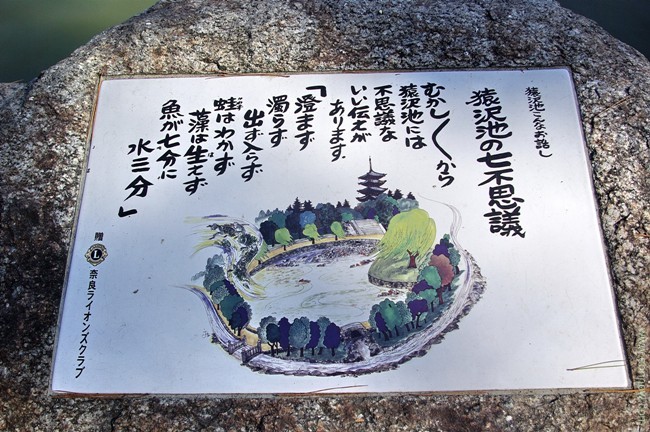 猿沢池こんなお話し
猿沢池の七不思議
むかし〳〵から
猿沢池には
不思議な
いい伝えが
あります
「澄まず
濁らず
出ず入らず
蛙はわかず
藻は生えず
魚が七分に
水三分」
贈 L 奈良ライオンズクラブ